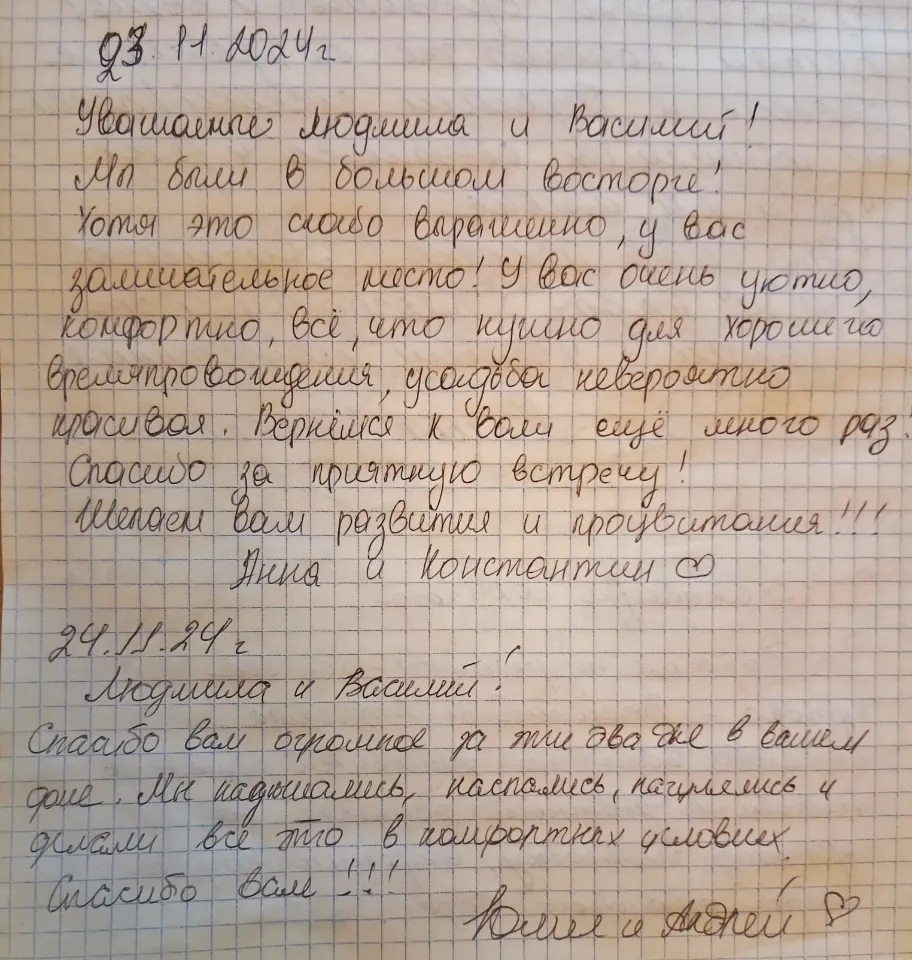 23.11.2024г
Уважаемые Людмила и Василий!
Мы были в большом восторге!
Хотя это слабо выражено, у вас
замечательное место! У вас очень уютно,
комфортно, всё, что нужно для хорошего
времяпровождения, усадьба невероятно
красивая. Вернёмся к вам ещё много раз!
Спасибо за приятную встречу!
Желаем вам развития и процвитания!!!
Анна и Константин ♡
24.11.24г
Людмила и Василий!
Спасибо вам огромное за эти два дне в вашем
доме. Мы надышались, наспались, нагулялись и
делали всё это в комфортных условиях.
Спасибо вам!!!
Юлия и Андрей ♡